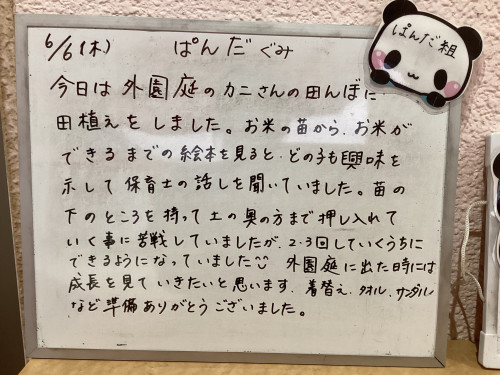 6/6(木) ぱんだぐみ
ぱんだ組
今日は外園庭のカニさんの田んぼに
田植えをしました。お米の苗から、お米が
できるまでの絵本を見ると、どの子も興味を
示して保育士の話しを聞いていました。苗の
下のところを持って土の奥の方まで押し入れて
いく事に苦戦していましたが、2.3回していくうちに
できるようになっていました 外園庭に出た時には
成長を見ていきたいと思います、着替え、タオル、サンダル
など準備ありがとうございました。